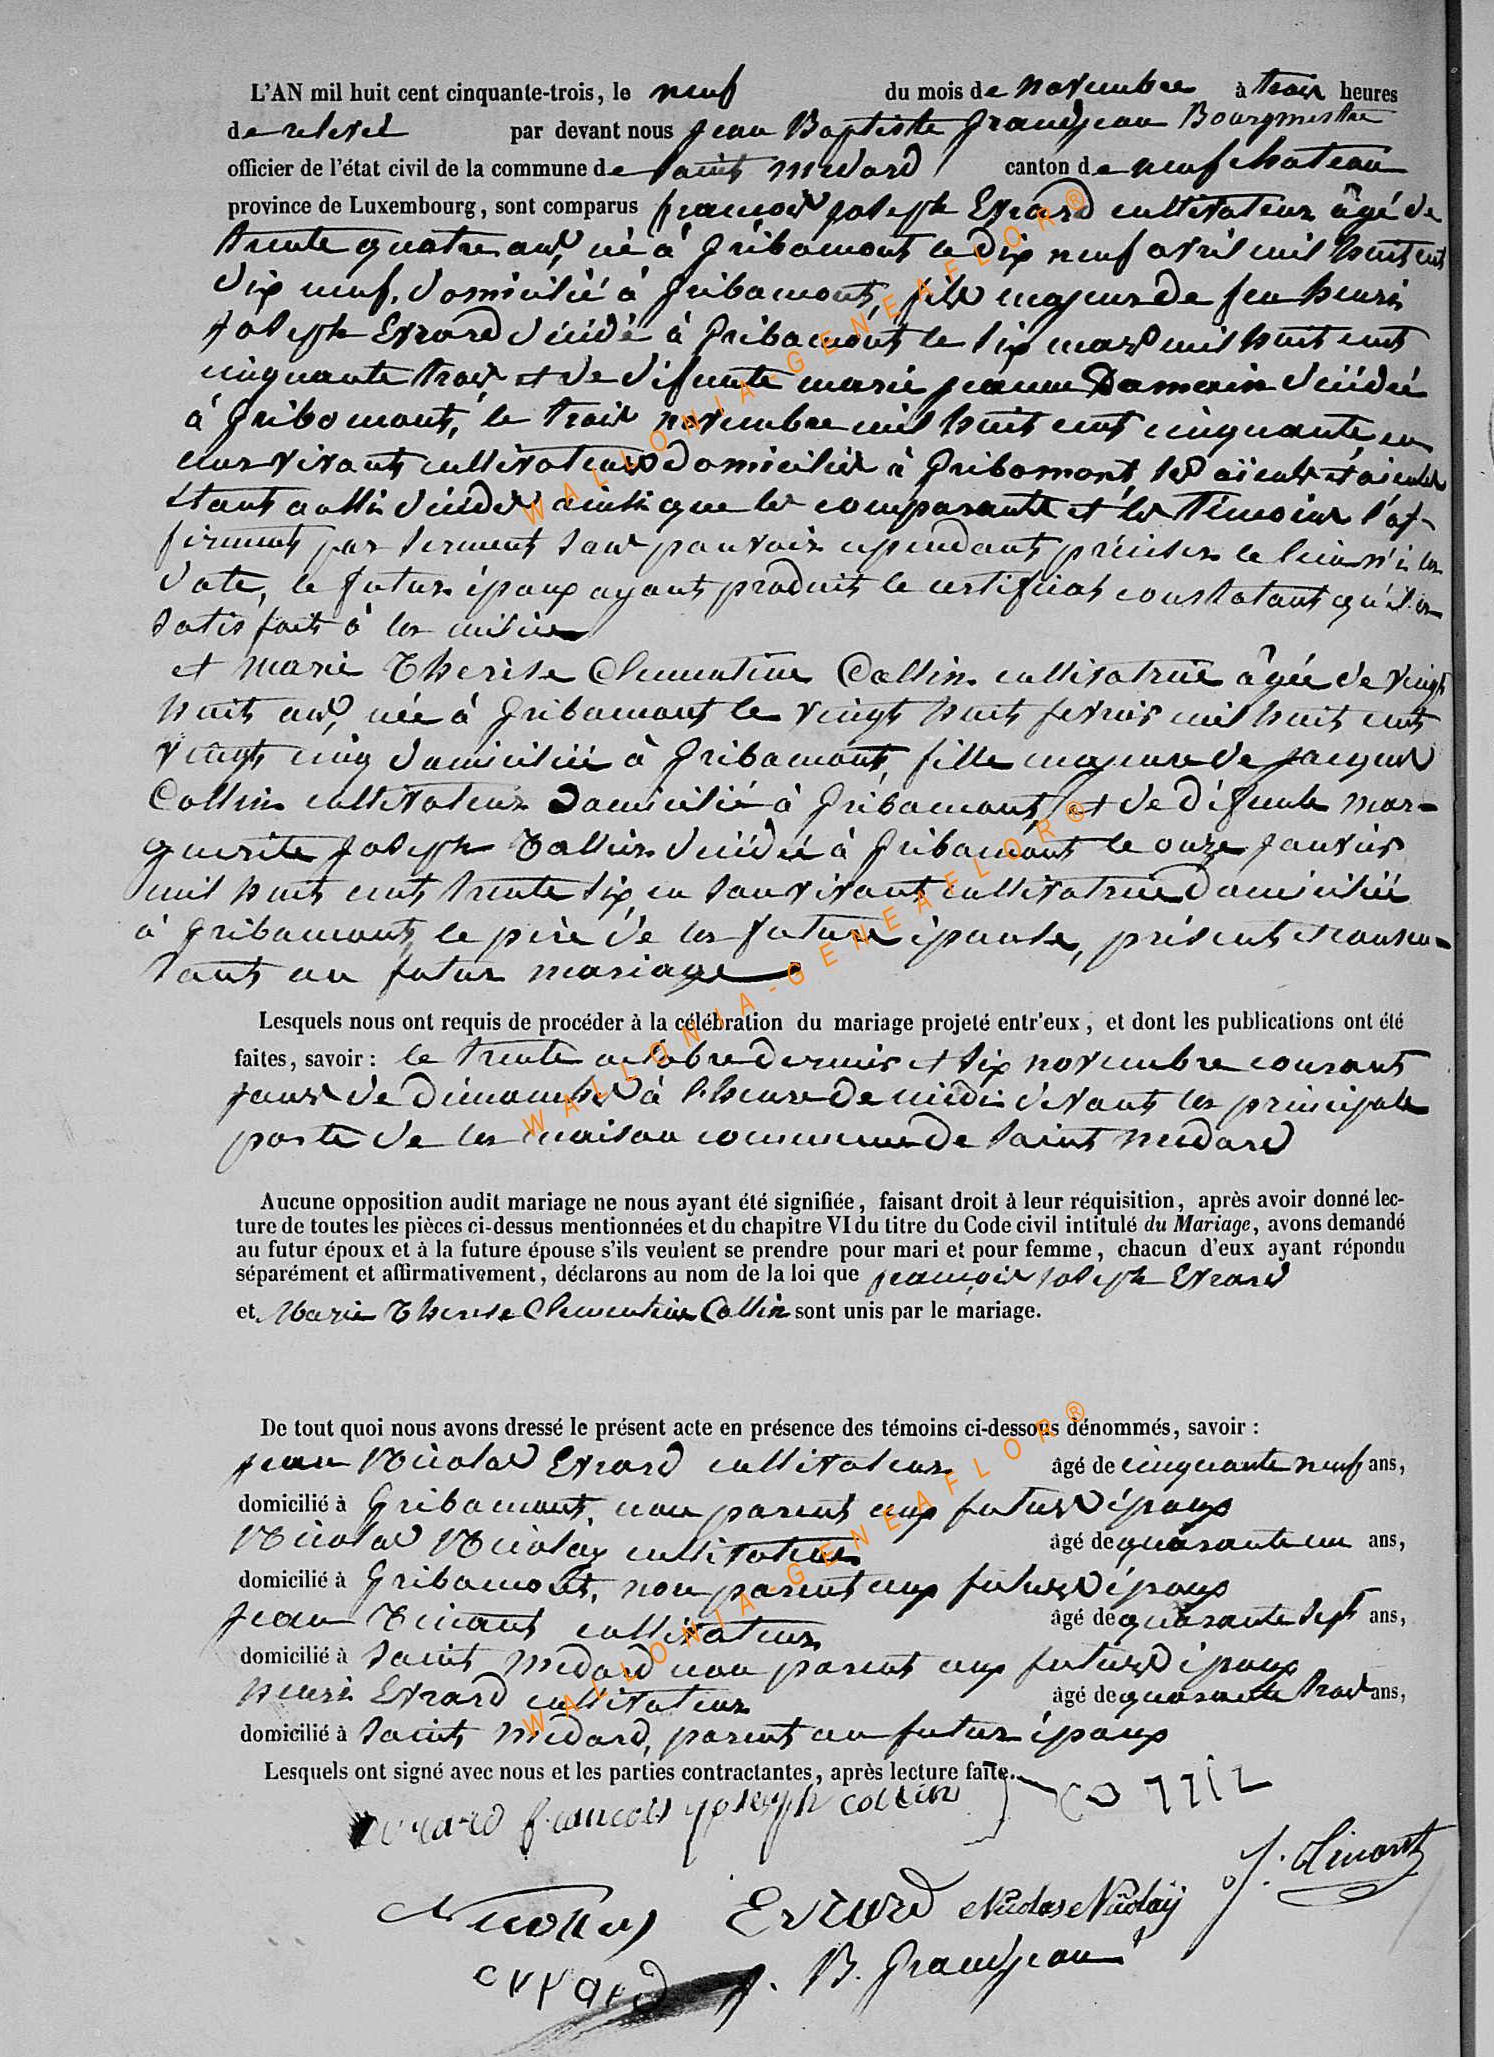 L'AN mil huit cent cinquante-trois, le neuf du mois de novembre à trois heures
de relevée par devant nous Jean Baptiste Grandjean Bourgmestre
officier de l'état civil de la commune de Saint Médard canton de neufchateau
province de Luxembourg, sont comparus françois Joseph Evrard cultivateur âgé de
trente quatre ans, né à Gribomont le dix neuf avril mil huit cent
dix neuf, domicilié à Gribomont, fils majeur de feu henri
Joseph Evrard décédé à Gribomont le six mars mil huit cent
cinquante trois et de défunte marie jeanne Damoin décédée
à Gribomont, le trois novembre mil huit cent cinquante, en
leur vivants cultivateurs domiciliés à Gribomont, les aïeuls et aïeules
étant aussi décédés ainsi que les comparants et les témoins l'af-
firment par serment sans pouvoir cependant préciser le lieu ni la
date, le futur époux ayant produit le certificat constatant qu'il a
satisfait à la milice
et marie Therèse Clementine Collin cultivatrice âgée de vingt
huit ans, née à Gribomont le vingt huit fevrier mil huit cent
vingt cinq domiciliée à Gribomont, fille majeure de Jacques
Collin cultivateur domicilié à Gribomont, et de défunte mar-
guerite Joseph décédée à Gribomont le onze Janvier
mil huit cent trente six, en son vivant cultivatrice domiciliée
à Gribomont, le père de la future épouse, présent et consen-
tant au futur mariage
Lesquels nous ont requis de procéder à la célébration du mariage projeté entr'eux, et dont les publications ont été
faites, savoir : le trente octobre dernier et six novembre courant
jours de dimanche à l'heure de midi devant la principale
porte de la maison commune de Saint Médard
Aucune opposition audit mariage ne nous ayant été signifiée, faisant droit à leur réquisition, après avoir donné lec-
ture de toutes les pièces ci-dessus mentionnées et du chapitre VI du titre du Code civil intitulé du Mariage, avons demandé
au futur époux et à la future épouse s'ils veulent se prendre pour mari et pour femme, chacun d'eux ayant répondu
séparément et affirmativement, déclarons au nom de la loi que françois Joseph Evrard
et Marie Therese Clementine Collin sont unis par le mariage.
De tout quoi nous avons dressé le présent acte en présence des témoins ci-dessous dénommés, savoir :
Jean Nicolas Evrard cultivateur âgé de cinquante neuf ans,
domicilié à Gribomont, non parent aux futurs époux
Nicolas Nicolay cultivateur âgé de quarante un ans,
domicilié à Gribomont, non parent aux futurs époux
Jean Tinant cultivateur âgé de quarante sept ans,
domicilié à Saint Médard non parent aux futurs époux
henri Evrard cultivateur âgé de quarante trois ans,
domicilié à Saint Médard, parent au futur époux
Lesquels ont signé avec nous et les parties contractantes, après lecture faite.
evrard francois joseph collin
J. Tinant
Nicolas Evrard Nicolas Nicolaÿ
evrard J. B. Grandjean
WALLONIA-GENEAFLOR®
WALLONIA-GENEAFLOR®
WALLONIA-GENEAFLOR®